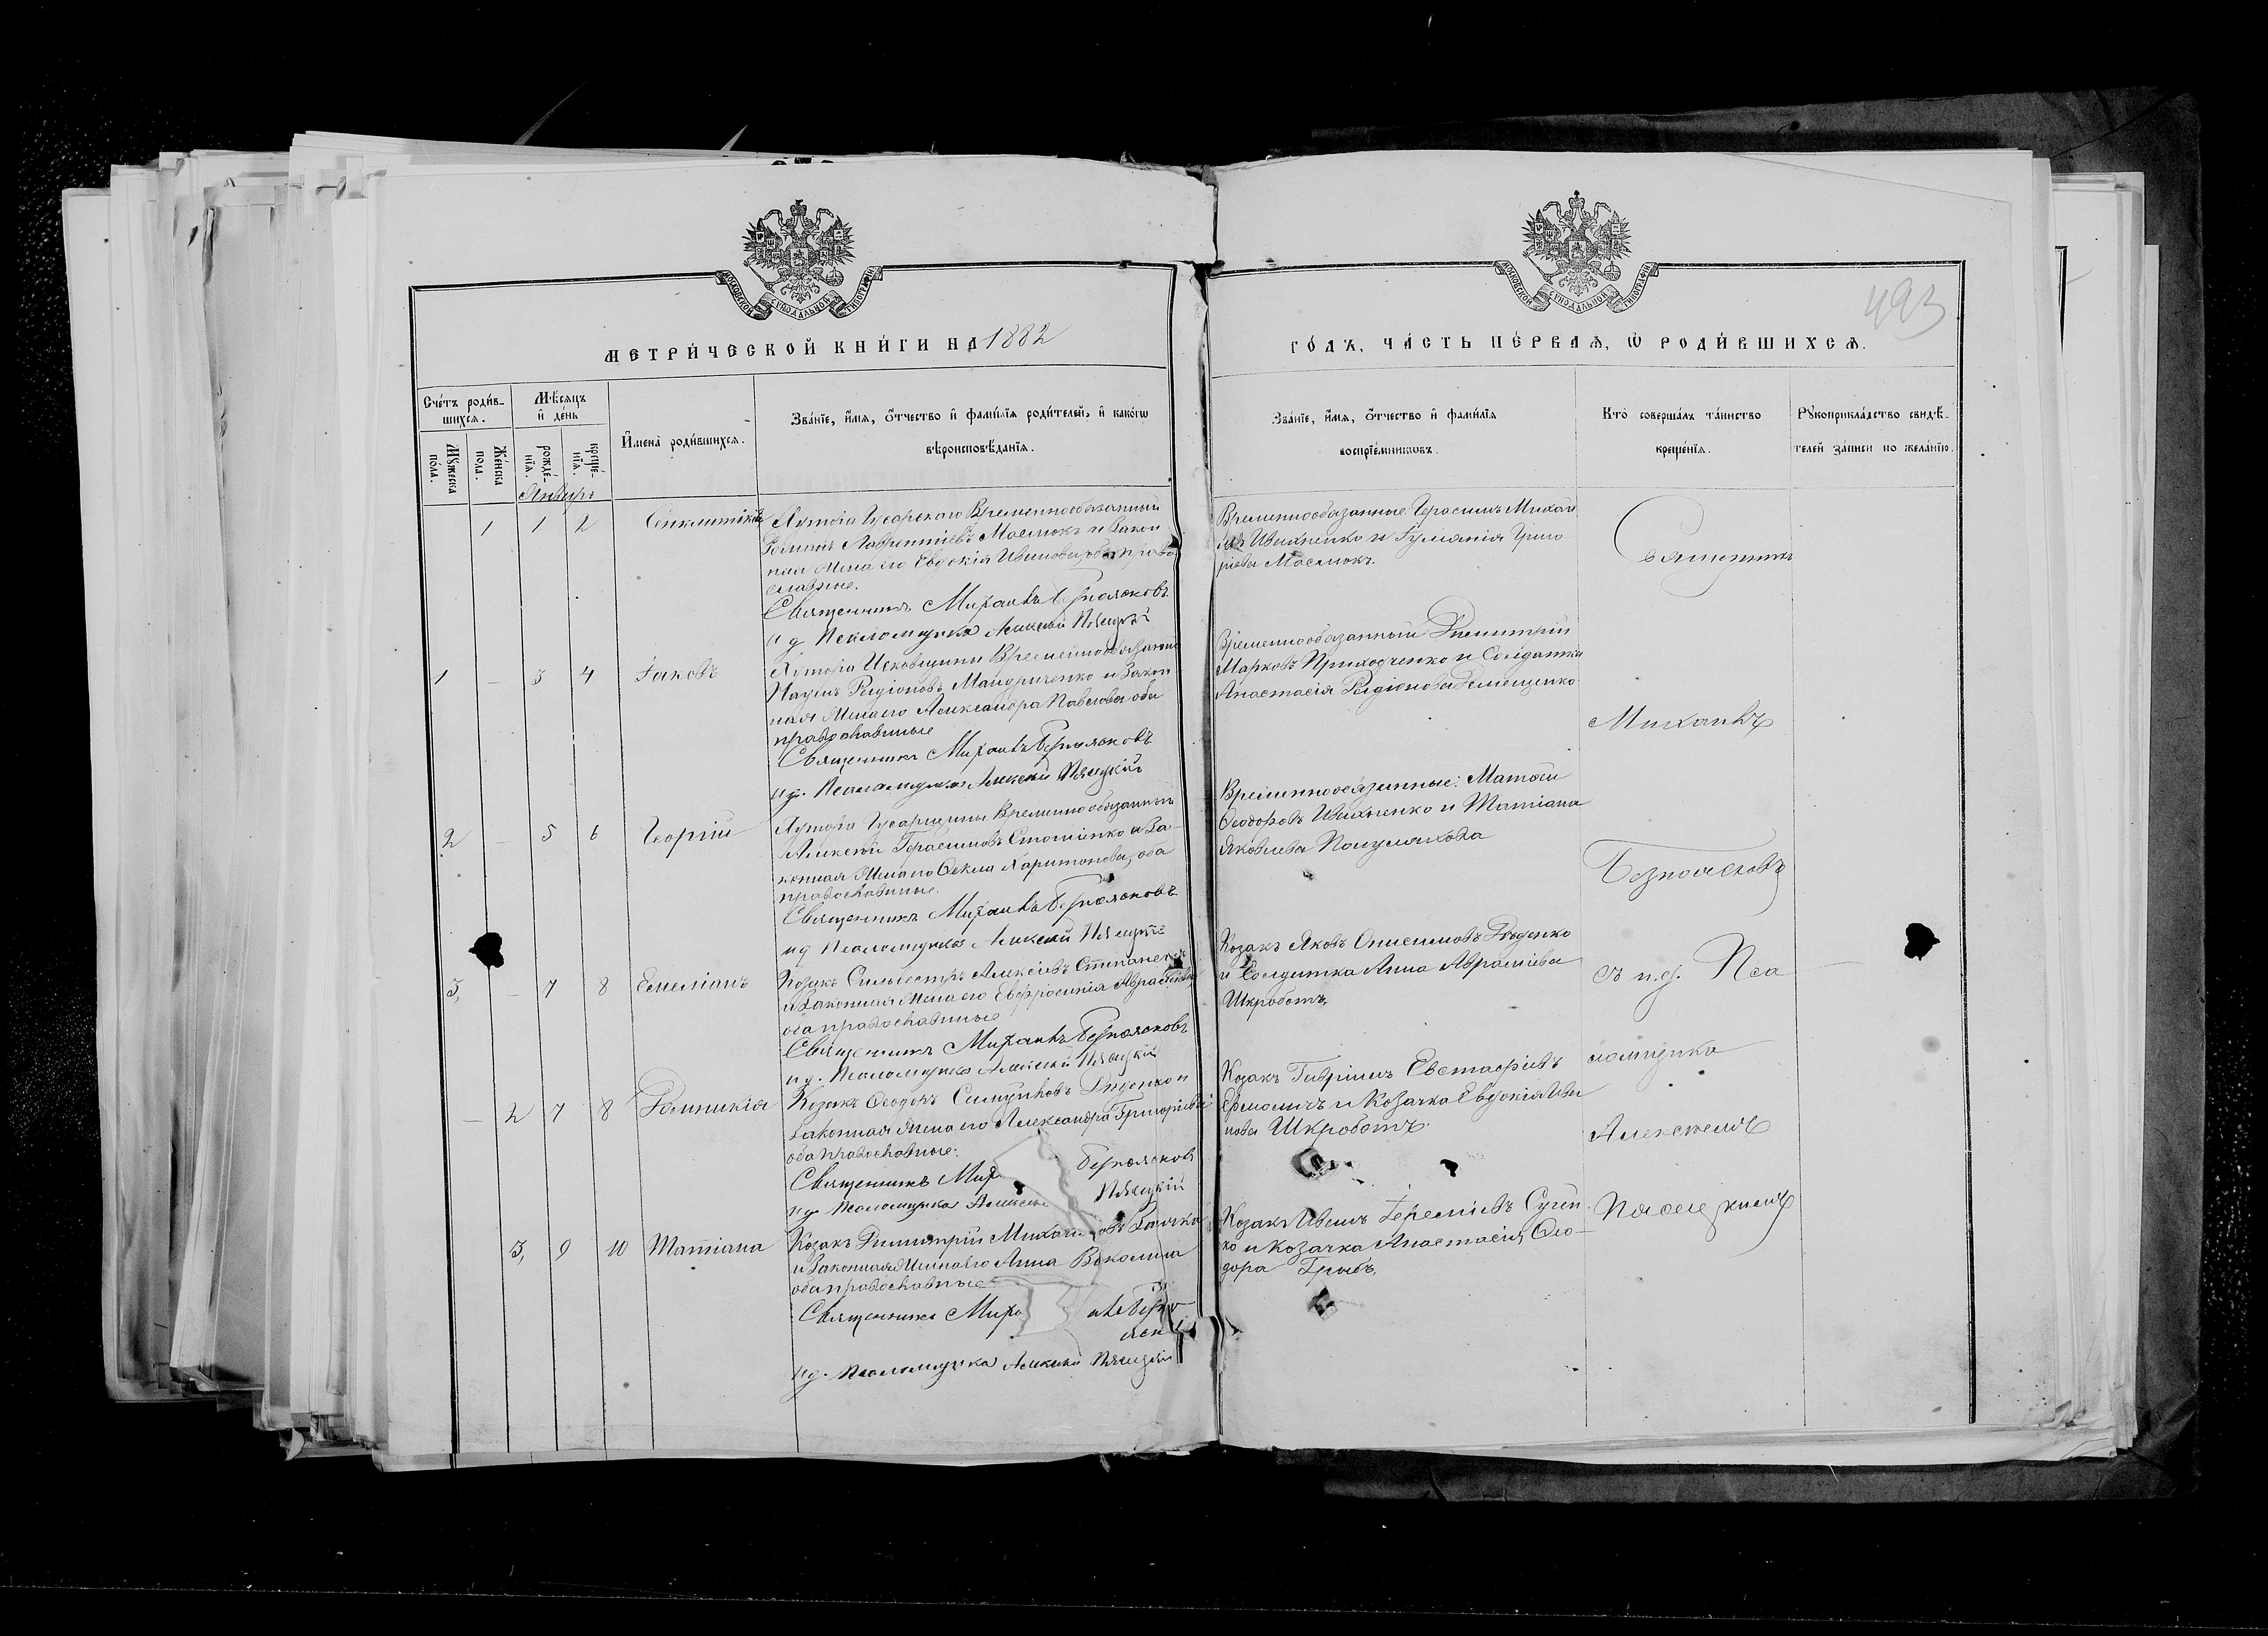 МОСКОВСКОЙ СѴНОДАЛЬНОЙ ТИПОГРАФІИ
МОСКОВСКОЙ СѴНОДАЛЬНОЙ ТИПОГРАФІИ
493
МЕТРИ́ЧЕСКОЙ КНИ́ГИ НА 1882
ГО́ДЪ, ЧА́СТЬ ПЕ́РВАѦ, Ѡ҆ РОДИ́ВШИХСѦ.
Сче́тъ роди́в-
шихсѧ.
Мꙋ́жеска
по́ла.
Же́нска
пола.
Мѣ́сѧцъ
и҆ де́нь
рожде́-
нїѧ.
креще́-
нїѧ.
И҆мена̀ роди́вшихсѧ.
Зва́нїе, и҆́мѧ, ѻ҆́тчество и҆ фами́лїѧ роди́телей, и҆ како́гѡ
вѣроисповѣ́данїѧ.
Зва́нїе, и҆́мѧ, ѻ҆́тчество и҆ фами́лїѧ
воспрїе́мникѡвъ.
Кто̀ соверша́лъ та́инство
креще́нїѧ.
Рꙋкоприкла́дство свидѣ́-
телей за́писи по жела́нїю.
Январь
1 1 2 Синклитикія
Хутора Гусарскаго Временнообязанный
Романъ Лаврентіевъ Маслюкъ и закон
ная жена его Евдокія Иванова, оба право
славные.
Священникъ Михаилъ Безпоясковъ
и д Псаломщика Алексей Пясецкій
Временнообязанные Герасимъ Михай
ловъ Ивахненко и Гуліянія Григо
рьева Маслюкъ.
1 – 3 4 Іаковъ
Хутора Исковщины Временнообязанный
Наумъ Родіоновъ Мандриченко и Закон
ная жена его Александра Павлова оба
православные
Священникъ Михаилъ Безпоясковъ
и д. Псаломщика Алексей Пясецкій
Временнообязанный Димитрій
Марковъ Приходченко и Солдатка
Анастасія Родіонова Демещенко
2 – 5 6 Георгій
Хутора Гусарщины Временнообязанный
Алексей Герасимовъ и За-
конная жена его Ѳекла Харитонова, оба
православные.
Священникъ Михаилъ Безпоясковъ
и д Псаломщика Алексей Пясецкій
Временнообязанные: Матвѣй
Ѳеодоровъ Ивахненко и Татіана
Яковлева Полулякова
3, – 7 8 Емеліанъ
Козакъ Сильвестръ Алексіевъ Степаненко
и Законная жена его Евфросинія
оба православные
Священникъ Михаилъ Безпоясковъ
и д. Псаломщика Алексей Пясецкій
Козакъ Яковъ Онисимовъ Дѣденко
и Солдатка Анна Авраміева
Шкроботъ
– 2 7 8 Домникія
Козакъ Ѳеодоръ Самуиловъ Диденко и
Законная жена его Александра Григоріева
оба православные.
Священникъ Мих Безпоясков
и д Псаломщика Алексей Пясецкій
Козакъ Гавріилъ Евстафіевъ
Ермоличъ и Козачка Евдокія Ива
нова Шкроботъ.
3, 9 10 Татіана
Козакъ Димитрій Михайловъ
и Законная жена его Анна
оба православные
Священникъ Миха илъ Безпо-
ясков
и д. Псаломщика Алексей Пясецкій
Козакъ Иванъ Іереміевъ
и Козачка Анастасія Ѳео-
дора Грибъ.
Священникъ
Михаилъ
Безпоясковъ
съ и.д. Пса
ломщика
Алексеемъ
Пясецкимъ